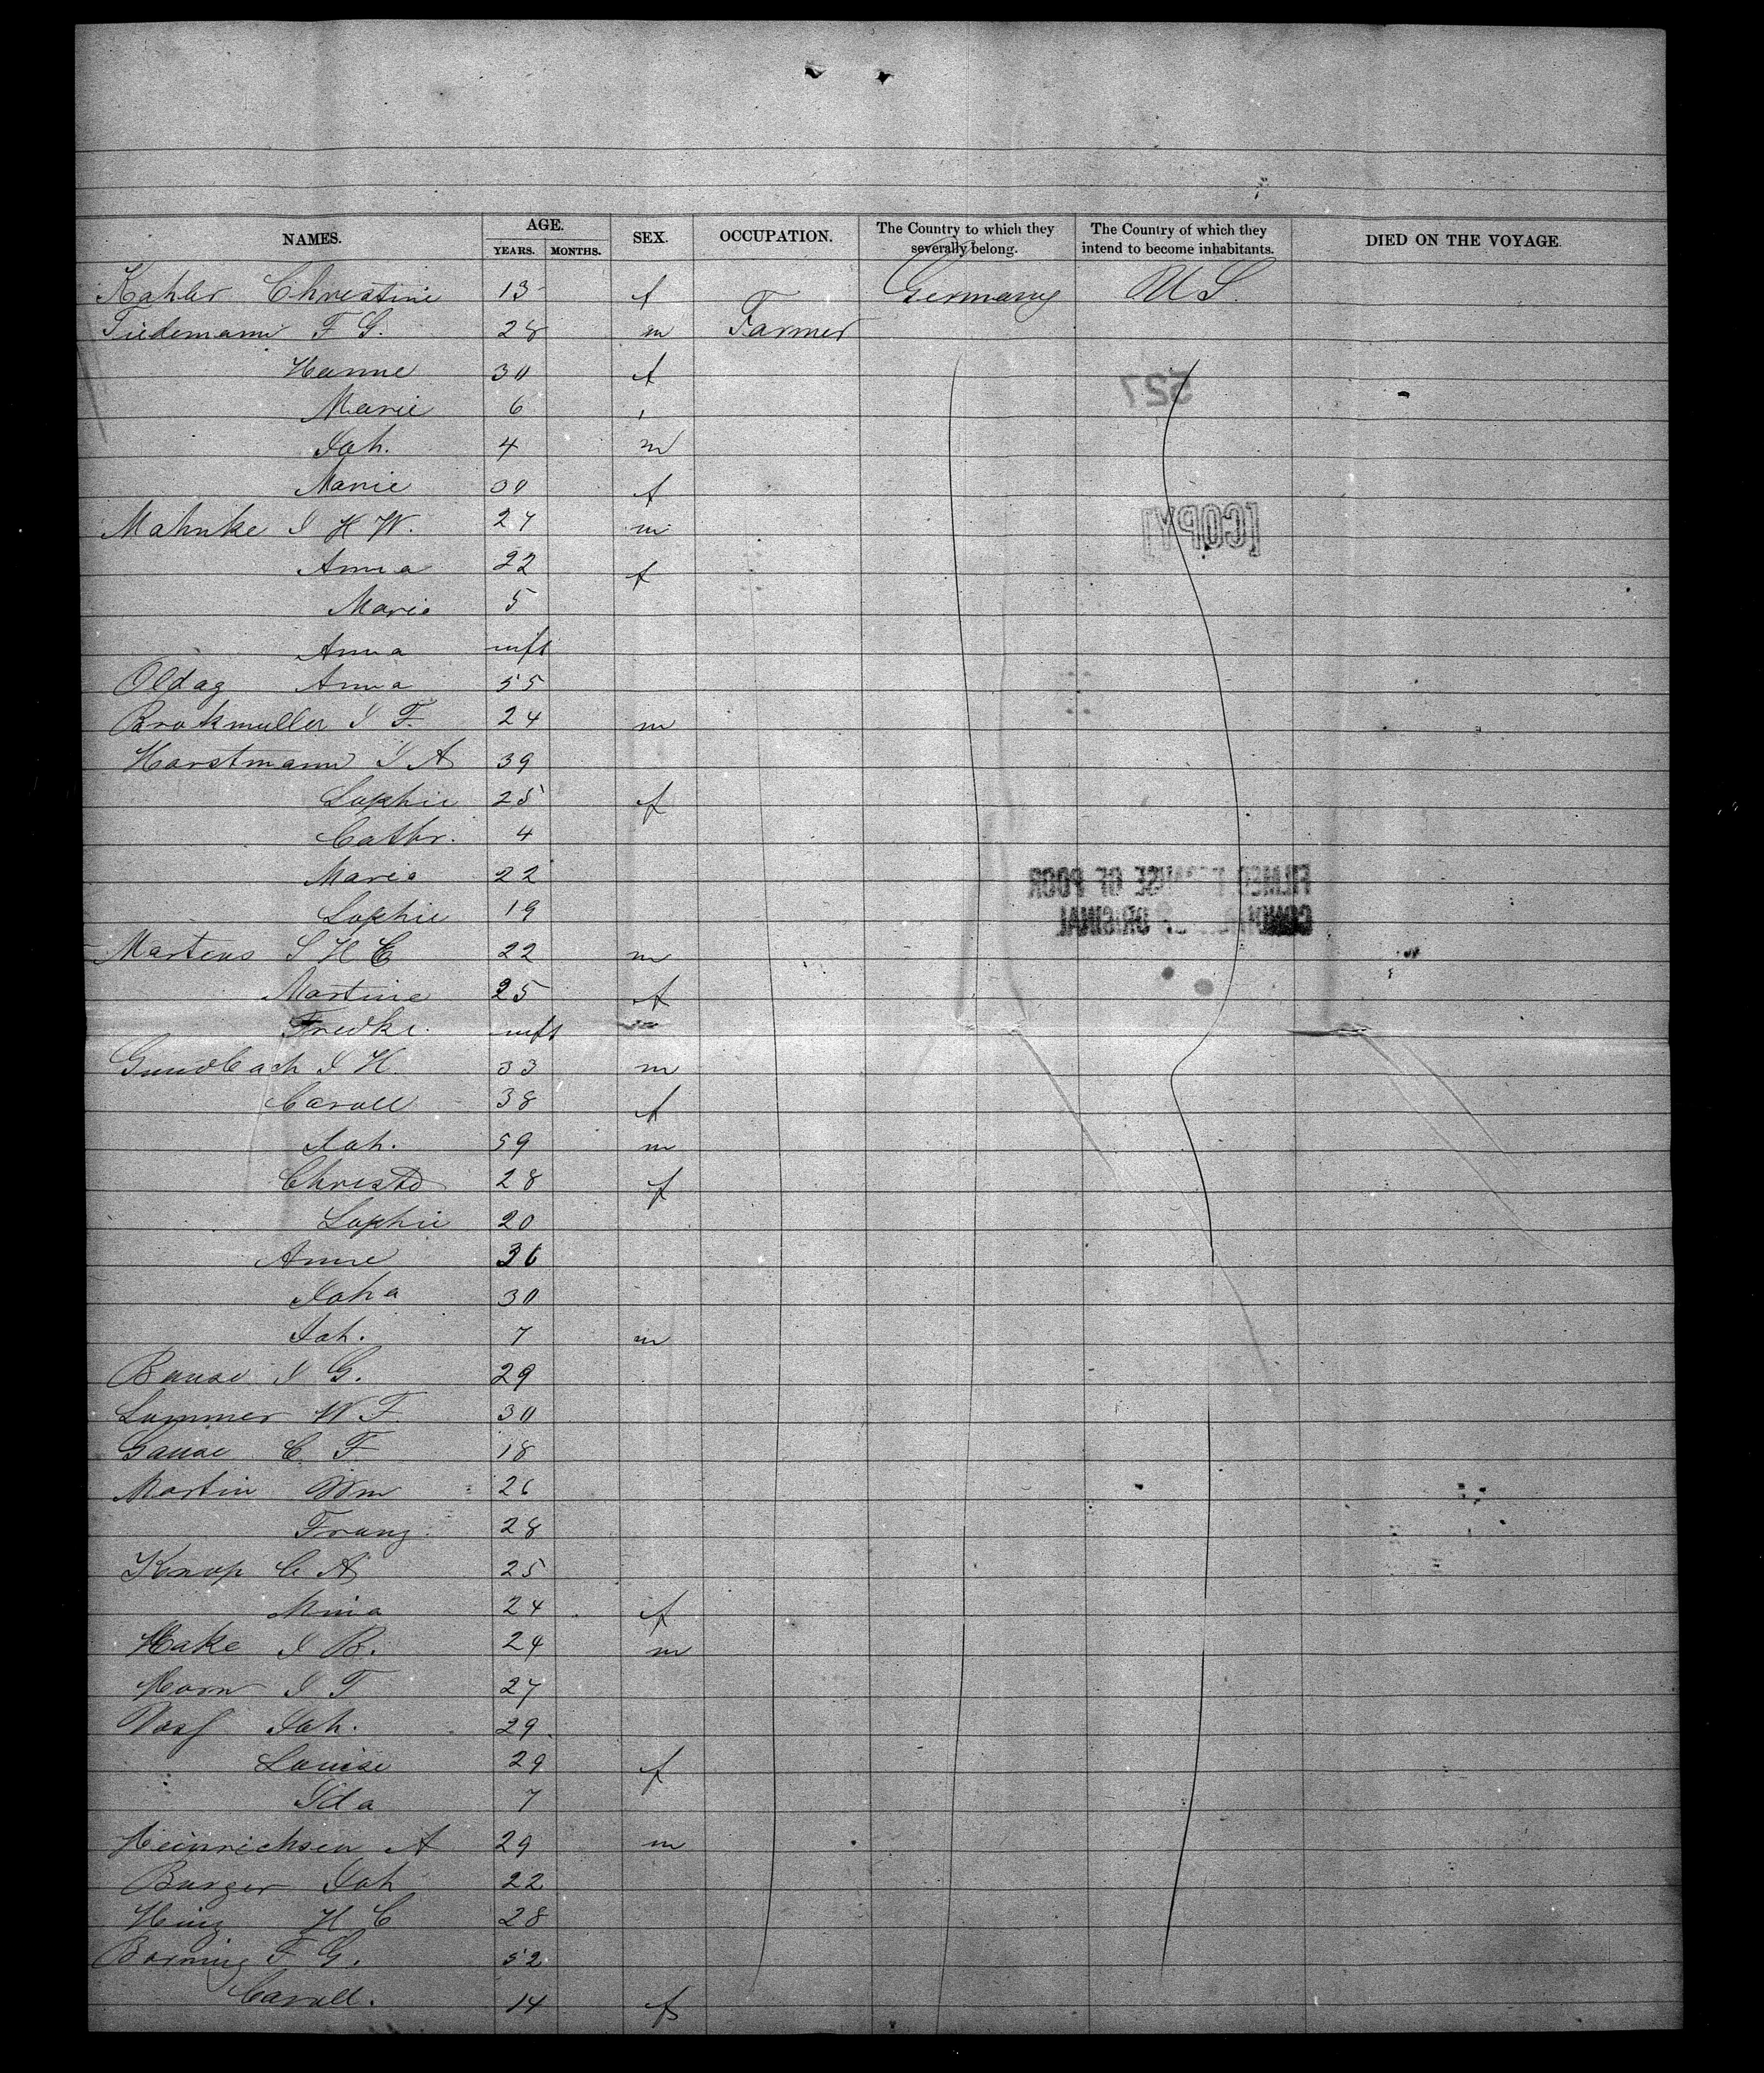 NAMES. AGE. SEX. OCCUPATION. The Country to which they severally belong. The Country of which they intend to become inhabitants. DIED ON THE VOYAGE.
YEARS. MONTHS.
Kahler Christine 13 f Germany U S.
Tiedemann F G. 28 m Farmer
Hanne 30 f
Marie 6 "
527
Joh. 4 m
Marie 30 f
Mahnke J H W. 27 m
[COPY]
Anna 22 f
Maria 5
Anna inft
Oldag Anna 55
Brokmuller J F. 24 m
Horstmann J A 39
Sophie 25 f
Cathr. 4
Maria 22
FILMED BECAUSE OF POOR
Sophie 19
CONDITION OF ORIGINAL
Martens J H C 22 m
Martine 25 f
Fredke. inft
J H. 33 m
Caroll 38 f
Joh. 59 m
Christ 28 f
Sophie 20
Anne 36
Joha 30
Joh. 7 m
Banse J G. 29
Lummer W F 30
Ganse C. F 18
Martin Wm 26
Franz 28
Knop C A 25
Mina 24 f
Hake J B. 24 m
Horn J F 27
Joh. 29.
Louise 29 f
Ida 7
Heinrichsen A 29 m
Burger Joh 22
Hinz H C 28
Borning F G. 52
Caroll. 14 f